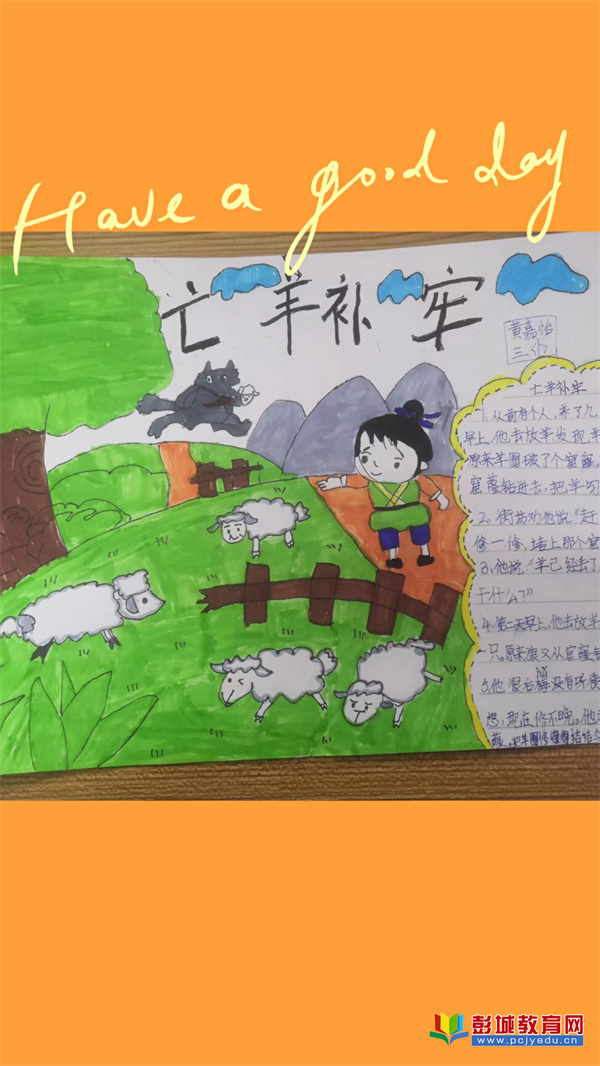 Have a good day
亡羊补牢
黄嘉怡
三.
亡羊补牢
1、从前有个人，养了几
早上，他去放羊发现羊
原来羊圈破了个窟窿
窟窿钻进去，把羊叼
2、街坊对他说“赶
修一修，堵上那个窟
3、他说“羊已经丢了
干什么？”
4、第二天早上，他去放羊
一只原来狼又从窟窿
5、他很后悔没有
想，现在修不晚。他
窿，把羊圈修
彭城教育网
www.pcjyedu.cn